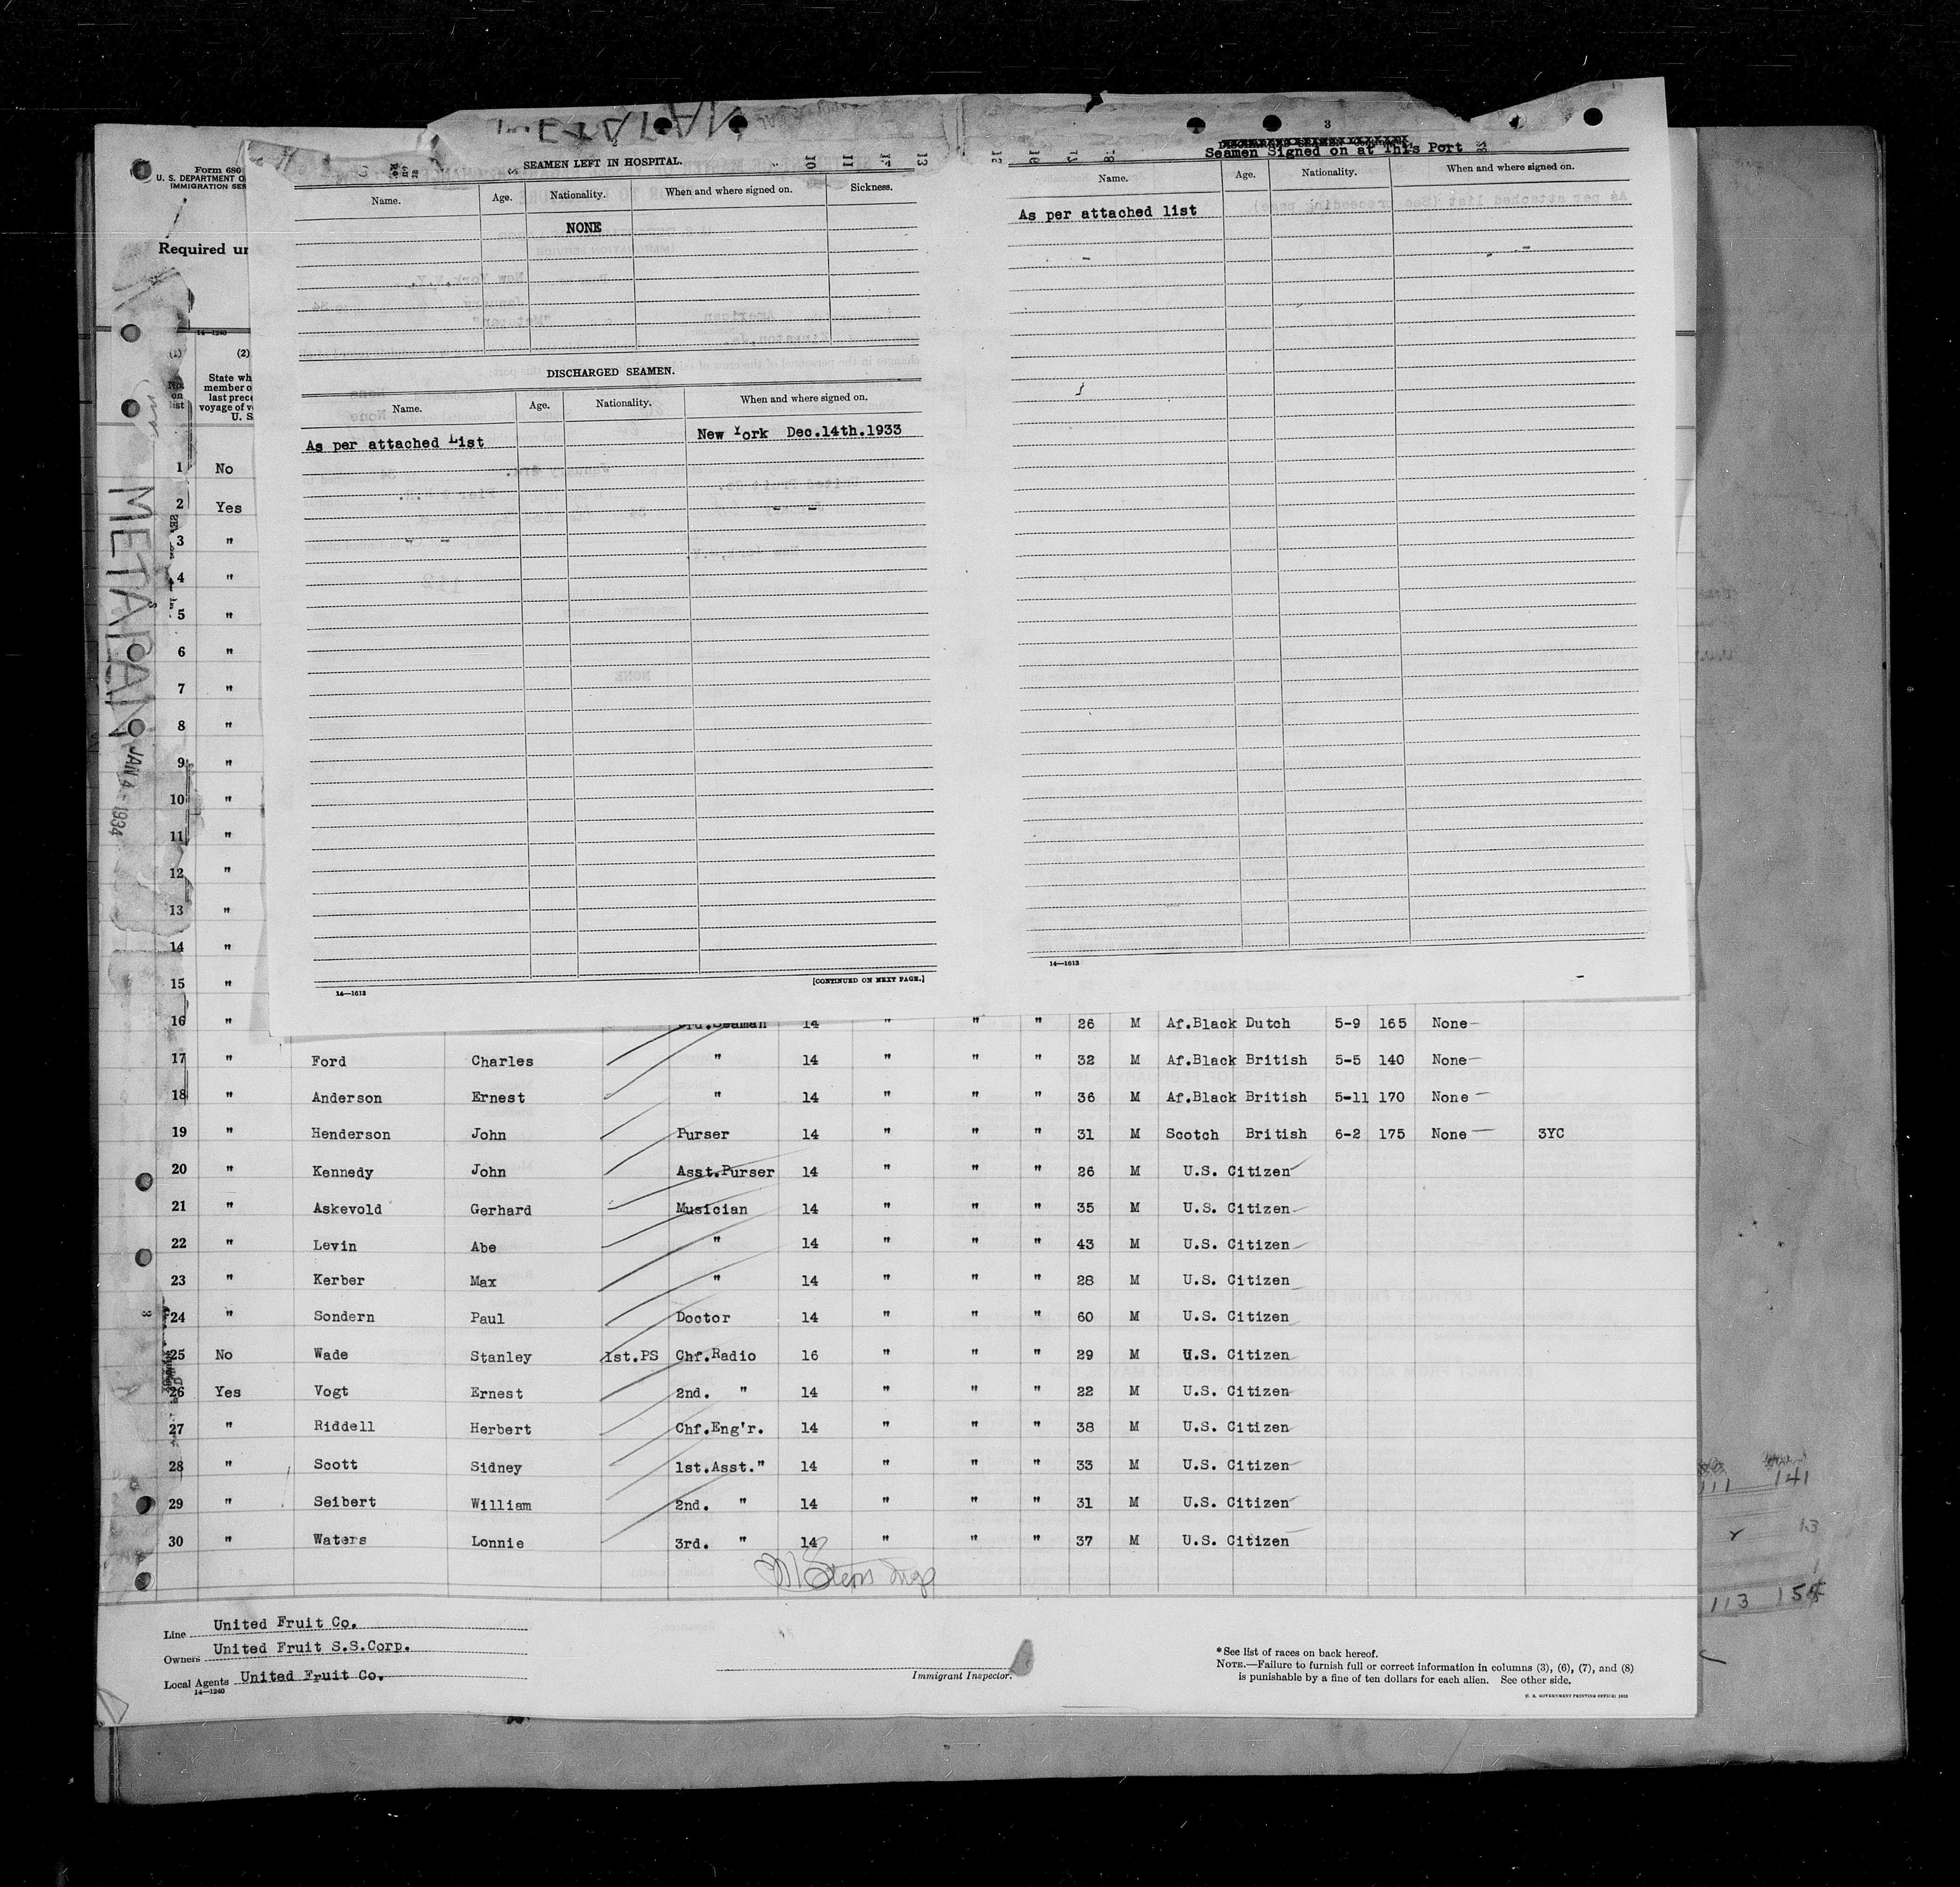 METAPAN
SEAMEN LEFT IN HOSPITAL.
Name. Age. Nationality. When and where signed on. Sickness.
NONE
DISCHARGED SEAMEN.
Name. Age. Nationality. When and where signed on.
As per attached List New York Dec.14th.1933
[CONTINUED ON NEXT PAGE.]
14—1613
3
Seamen Signed on at This Port
Name. Age. Nationality. When and where signed on.
As per attached list
14—1613
Form 680
U. S. DEPARTMENT O
IMMIGRATION SER
Required un
14—1240
(1) (2)
No. on list
State wh
member o
last prece
voyage of v
U. S.
METAPAN
JAN 4 - 1934
1 No
2 Yes
3 "
4 "
5 "
6 "
7 "
8 "
9 "
10 "
11 "
12 "
13 "
14 "
15 "
16 " Ord.Seaman 14 " " " 26 M Af.Black Dutch 5-9 165 None
17 " Ford Charles " 14 " " " 32 M Af.Black British 5-5 140 None
18 " Anderson Ernest " 14 " " " 36 M Af.Black British 5-11 170 None
19 " Henderson John Purser 14 " " " 31 M Scotch British 6-2 175 None 3YC
20 " Kennedy John Asst.Purser 14 " " " 26 M U.S. Citizen
21 " Askevold Gerhard Musician 14 " " " 35 M U.S. Citizen
22 " Levin Abe " 14 " " " 43 M U.S. Citizen
23 " Kerber Max " 14 " " " 28 M U.S. Citizen
24 " Sondern Paul Doctor 14 " " " 60 M U.S. Citizen
25 No Wade Stanley 1st.PS Chf.Radio 16 " " " 29 M U.S. Citizen
26 Yes Vogt Ernest 2nd. " 14 " " " 22 M U.S. Citizen
27 " Riddell Herbert Chf.Eng'r. 14 " " " 38 M U.S. Citizen
28 " Scott Sidney 1st.Asst." 14 " " " 33 M U.S. Citizen
29 " Seibert William 2nd. " 14 " " " 31 M U.S. Citizen
30 " Waters Lonnie 3rd. " 14 " " " 37 M U.S. Citizen
Line United Fruit Co.
Owners United Fruit S.S.Corp.
Local Agents United Fruit Co.
14—1240
Immigrant Inspector.
*See list of races on back hereof.
NOTE.—Failure to furnish full or correct information in columns (3), (6), (7), and (8)
is punishable by a fine of ten dollars for each alien. See other side.
U. S. GOVERNMENT PRINTING OFFICE: 1932
111 141
13
113